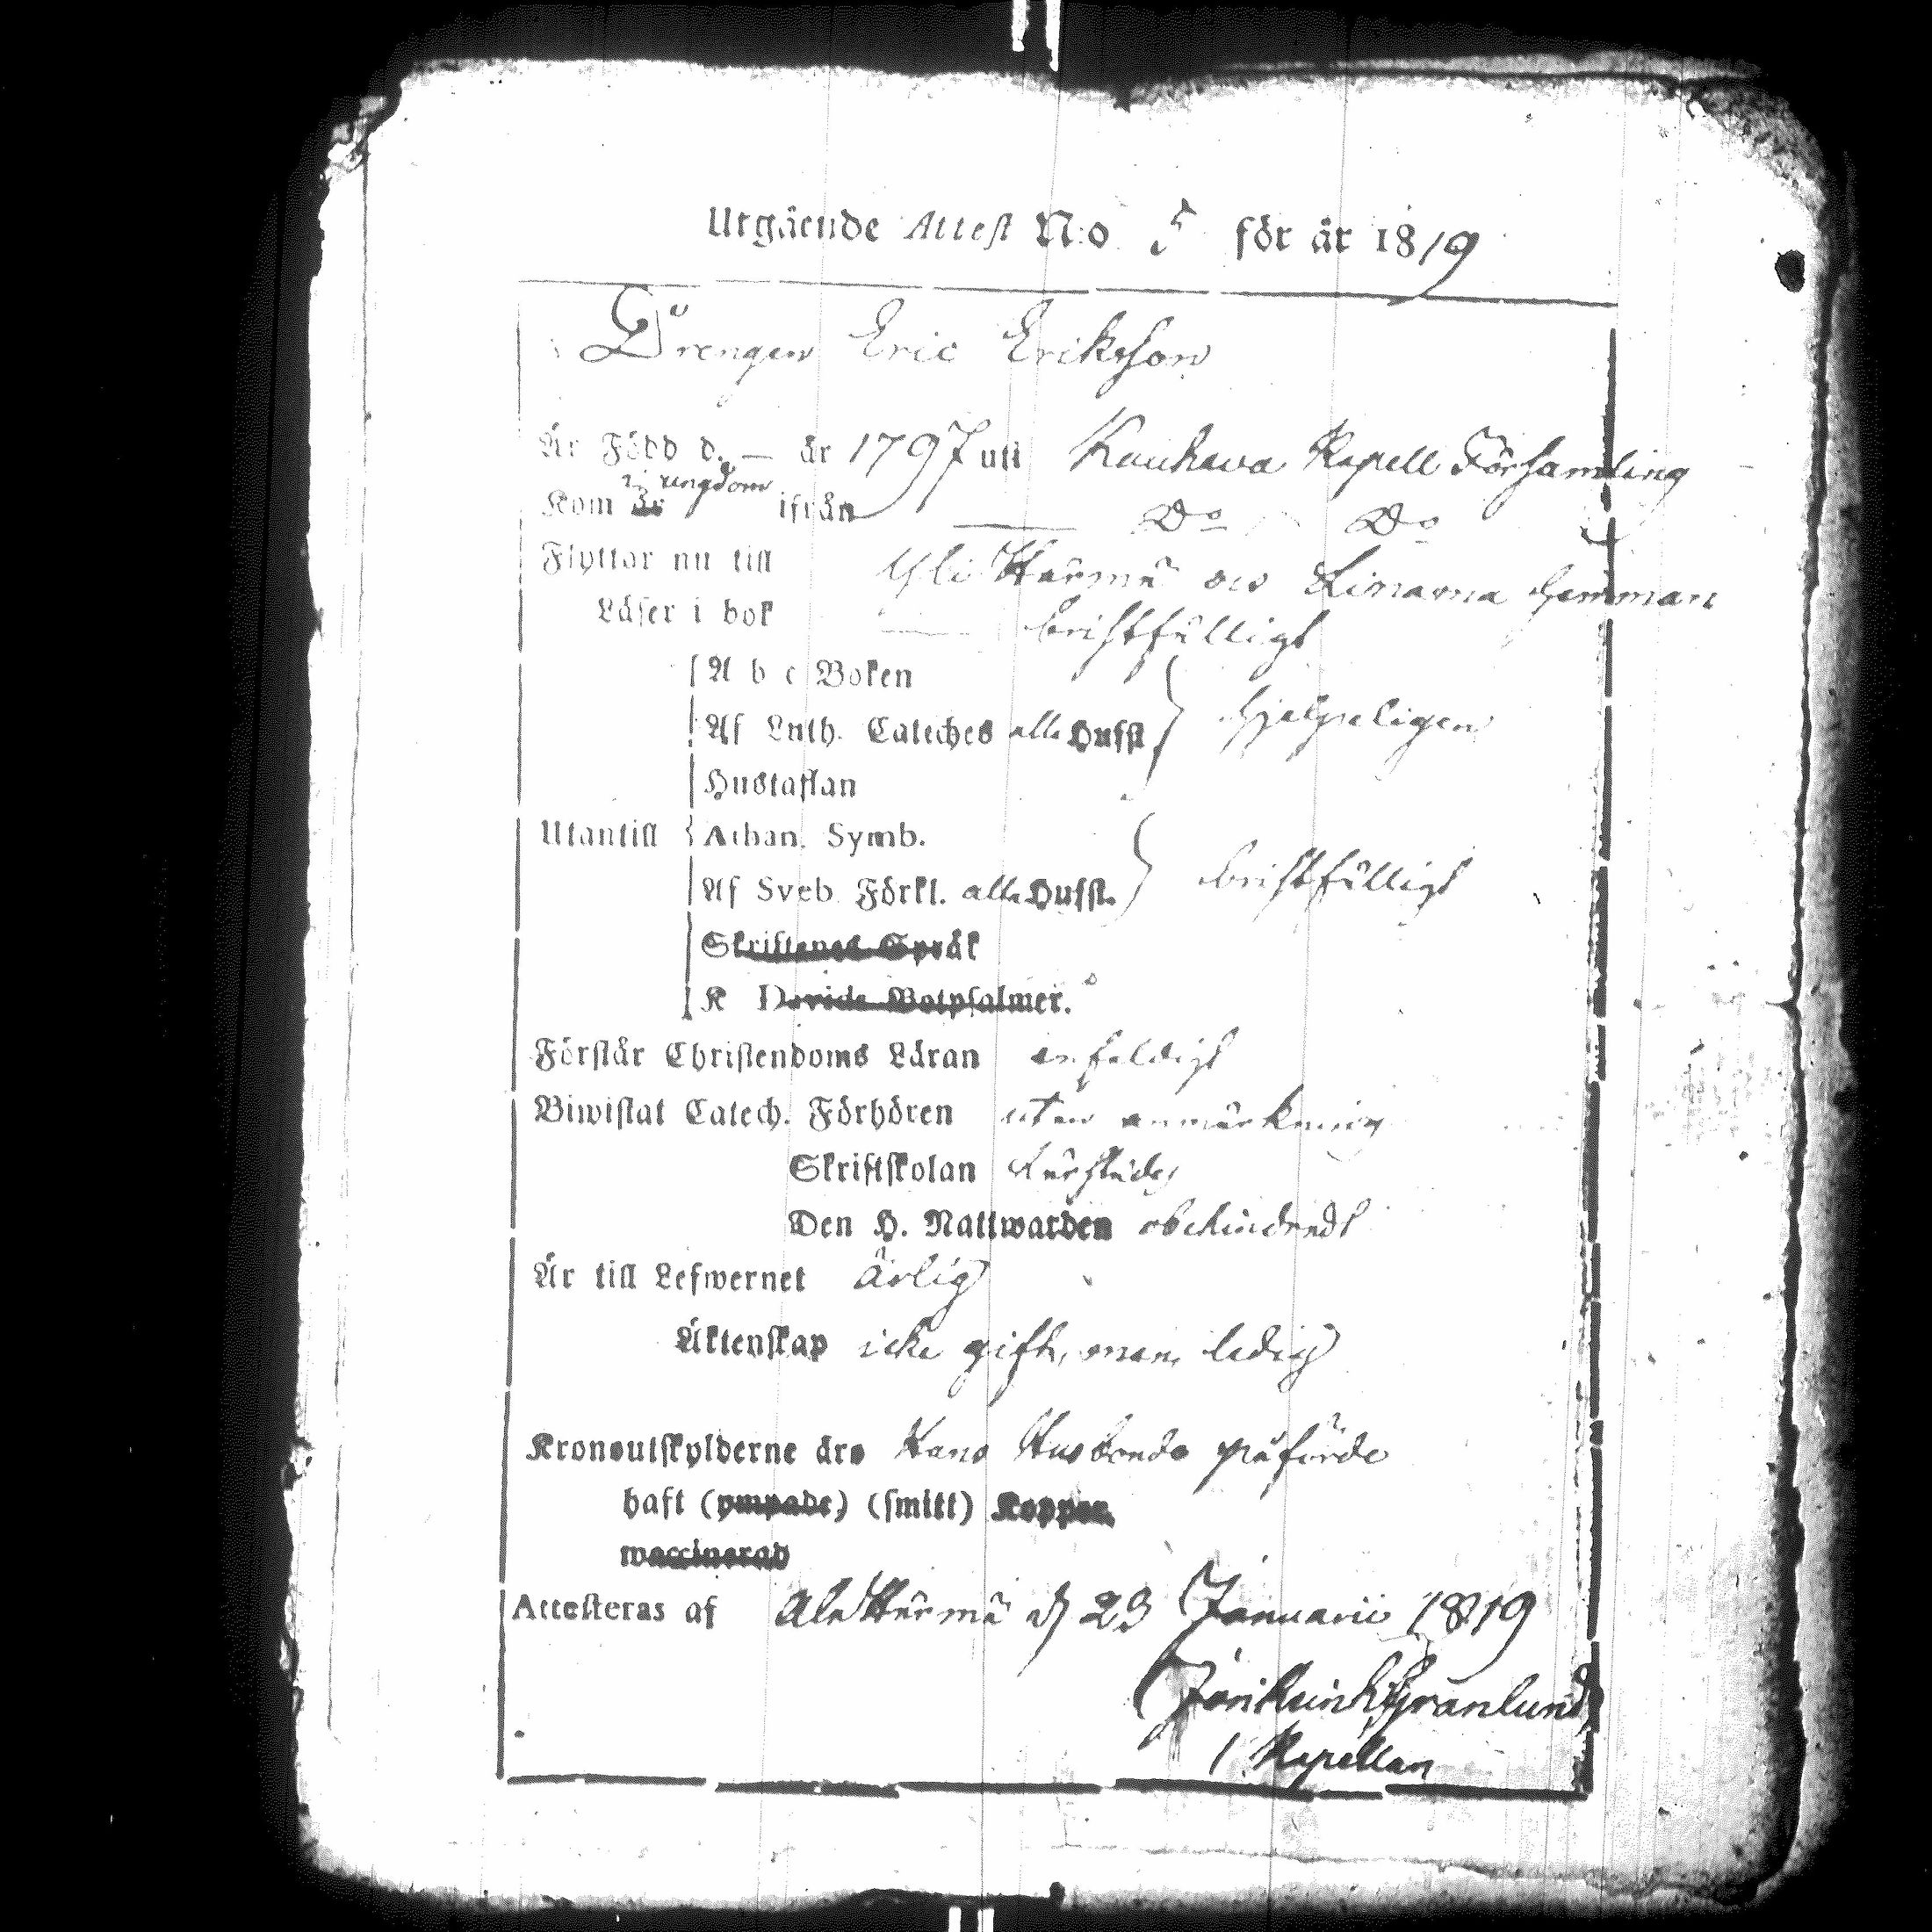 Utgående Attest N:o 5 för år 1819
Drengen Eric Eriksson
Är Född d. — år 1797 uti Kauhava Kapell Församling
i ungdom
Kom år ifrån — Do Do
Flyttar nu till Yli Härmä Hemman
Läser i bok — bristfälligt
A b c Boken
Af Luth. Cateches alla Hufst. hjelpeligen
Hustaflan
Utantill Athan. Symb.
Af Sveb. Förkl. alla Hufst. bristfälligt
Skriftenes Språk
K Davids Botpsalmer.
Förstår Christendoms Läran enfaldigt
Biwistat Catech. Förhören utan anmärkning
Skriftskolan
Den H. Nattwarden obehindradt
Är till Lefwernet ärlig
Äktenskap icke gift, men ledig
Kronoutskylderne äro Hans Husbonde påförde
haft (ympade) (smitt) Koppor
waccinerad
Attesteras af Ala Härmä d 23 Januarii 1819
Granlund
Kapellan